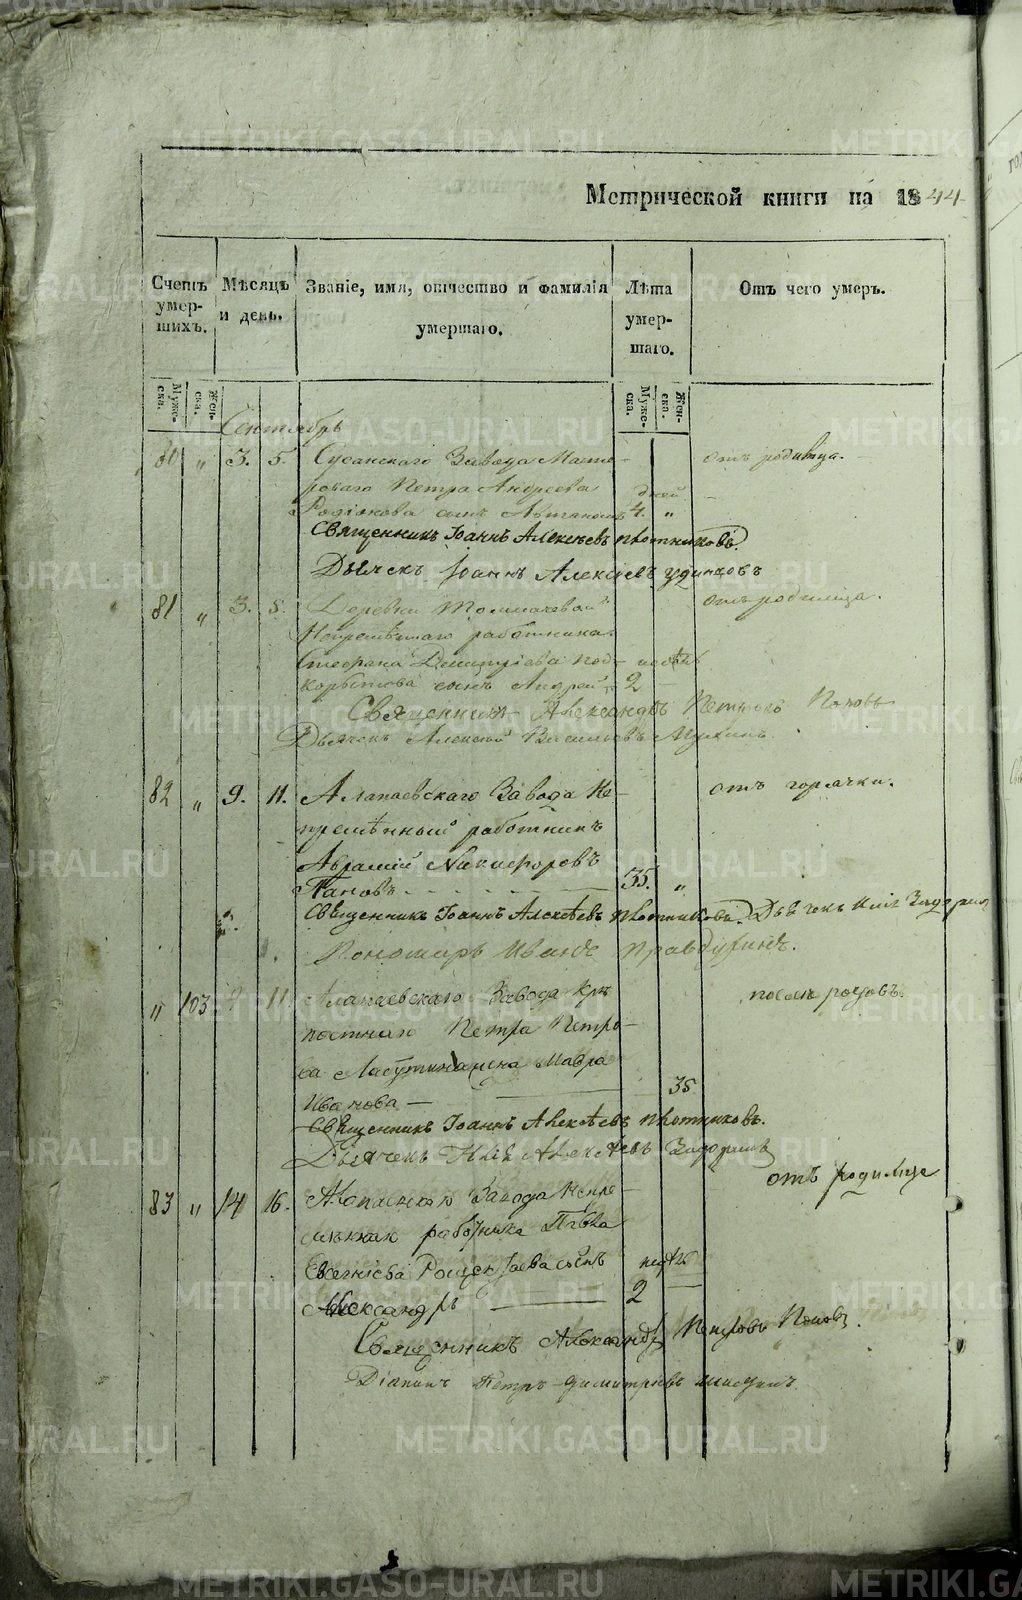 Метрической книги на 1844
Счетъ умершихъ.
Мѣсяцъ и день.
Званіе, имя, отчество и фамилія умершаго.
Лѣта умершаго.
Отъ чего умеръ.
Мужеска. Женска.
Мужеска. Женска.
Сентябрь
80 „ 3. 5. Сусанскаго Завода Масте- отъ родимца.
роваго Петра Андреева дней
Родіонова сынъ 4. „
Священникъ Іоаннъ Алексѣевъ Плотниковъ.
Дьячекъ Іоаннъ Алексіевъ Удинцовъ
81 „ 3. 5. Деревни Толмачевой отъ родимца.
Непремѣннаго работника
Стефана Димитріева Под- недѣль
корытова сынъ Андрей 2 —
Священникъ Александръ Петровъ Поповъ
Дьячекъ Алексѣй Васильевъ
82 „ 9. 11. Алапаевскаго Завода Не- отъ горячки.
премѣнный работникъ
Аврамій Никифоровъ
Пановъ 35. „
Священникъ Іоаннъ Алексѣевъ Плотниковъ. Дьячекъ
Пономарь Иванъ Правдухинъ.
„ 103 9 11 Алапаевскаго Завода Крѣ- послѣ родовъ.
постнаго Петра Петро-
ва жена Мавра
Иванова — 35
Священникъ Іоаннъ Алексѣевъ Плотниковъ.
Дьячекъ Алексѣевъ
83 „ 14 16. Завода Непре- отъ родимца
работника Павла
сынъ недѣль
Александръ 2 —
Священникъ Александръ Петровъ Поповъ.
Діаконъ Петръ Димитріевъ
METRIKI.GASO-URAL.RU